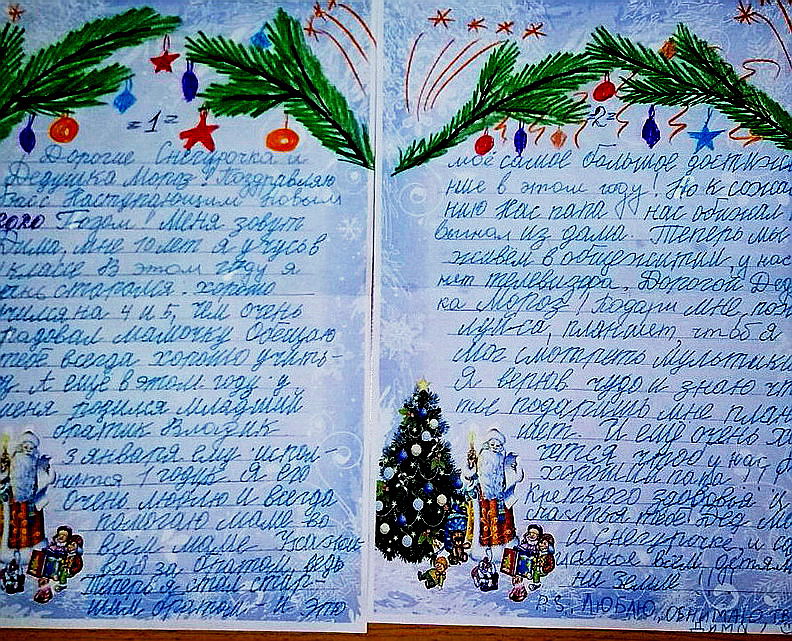 =1=
Дорогие Снегурочка и
Дедушка Мороз! Поздравляю
Васс Наступающим Новым
Годом! Меня зовут
Дима, мне 10 лет я учусь в
классе В этом году я
старался. хорошо
учился на 4 и 5, чем очень
радовал мамочку Обещаю
тебе всегда хорошо учить-
А еще в этом году у
меня родился младший
братик Владик
3 января ему испол-
нится 1 годик. Я его
очень люблю и всегда
помогаю маме во
всём маме Ухажи
ваю за братом, ведь
Теперь я стал стар-
шим братом - и это
=2=
моё самое большое достиже
ние в этом году! Но к сожа
нию Нас папа нас обижал
выгнал из дома. Теперь мы
живем в общежитии, у нас
нет телевизора, Дорогой Дед
ка Мороз! Подари мне, пож
луйса, планшет, чтоб я
мог смотреть мультики
Я верюв чудо и знаю чт
ты подаришь мне план
шет. И ещё очень х
чется чтоб у нас
хороший папа
Крепкого здоровья и
счастья тебе Дед Мо
и Снегурочке, и са
главное всем детям
на земле
P.S., ЛЮБЛЮ, ОБНИМАЮ, ТВ
ДИМА